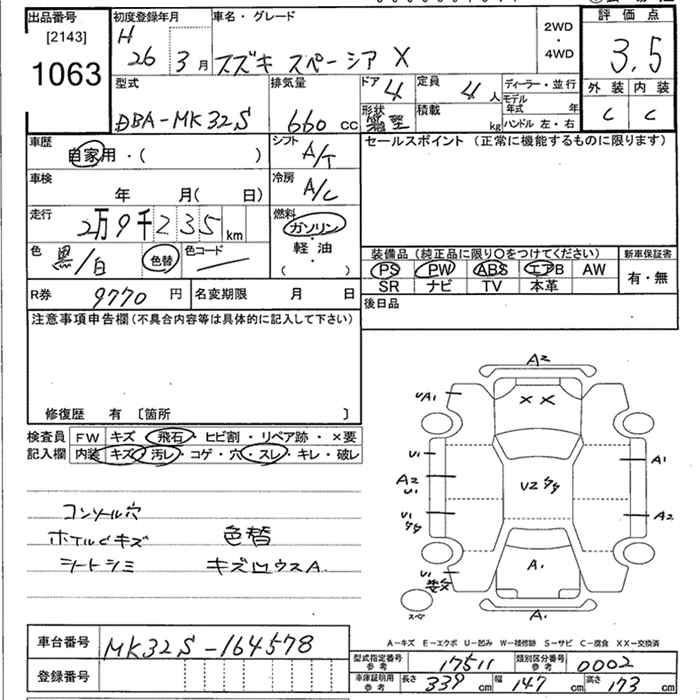 出品番号
[2143]
1063
初度登録年月
H
26 3月
車名・グレード
スズキ スペーシア X
2WD
・
4WD
評価点
3.5
外装 内装
C C
型式
DBA-MK32S
排気量
660 cc
ドア 4
定員 4人
ディーラー・並行
モデル年式 年
ハンドル 左・右
形状 箱型
積載 kg
車歴
自家用・( )
シフト
A/T
車検
年 月( 日)
冷房
A/C
走行
2万9千235 km
燃料
ガソリン
軽・油
( )
色
黒/白
色替
色コード
R券 9770 円
名変期限 月 日
セールスポイント (正常に機能するものに限ります)
装備品 (純正品に限り〇をつけてください)
新車保証書
PS PW ABS エアB AW
有・無
SR ナビ TV 本革
後日品
注意事項申告欄(不具合内容等は具体的に記入して下さい)
修復歴 有 〔箇所 〕
検査員
記入欄
FW キズ・飛石・ヒビ割・リペア跡・×要
内装 キズ・汚レ・コゲ・穴・スレ・キレ・破レ
コンソール穴
ホイルCキズ
シートシミ
色替
キズ凹ウスA.
A2
UA1
XX
U1
A2
U1
U1
U2
A1
A2
U1
A.
A.
スペア
A-キズ E-エクボ U-凹み W-補修跡 S-サビ C-腐食 XX-交換済
車台番号 MK32S-164578
登録番号
型式指定番号
参考
17511
類別区分番号
参考
0002
車庫証明用
参考
長さ 339 cm
幅 147 cm
高さ 173 cm